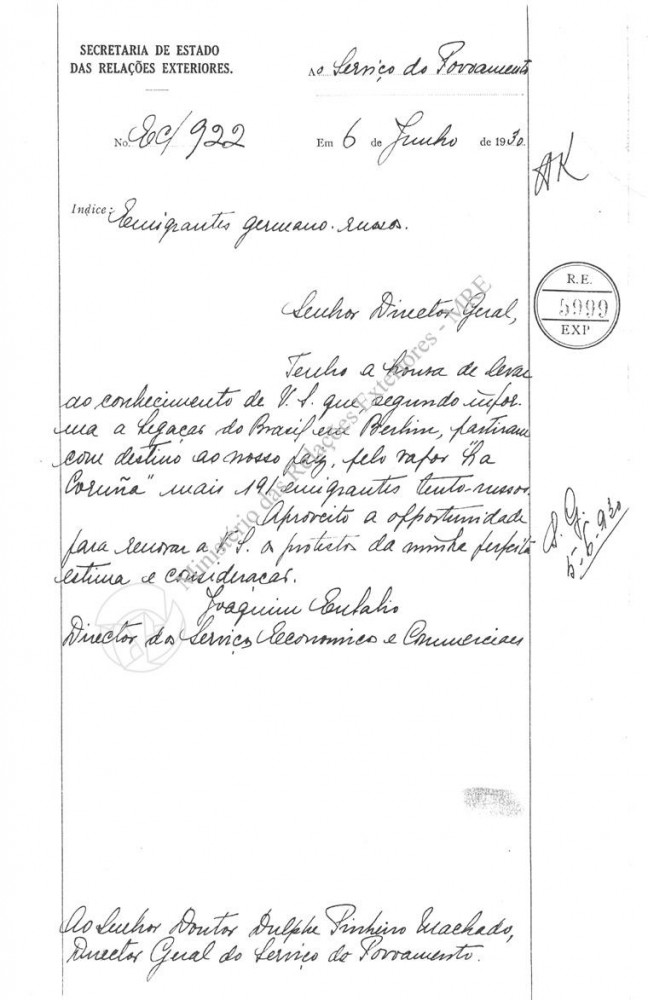 SECRETARIA DE ESTADO
DAS RELAÇÕES EXTERIORES.
Ao Serviço do Povoamento
No. EC/922
Em 6 de Junho de 1930.
AK
Indice: Emigrantes germano-russos.
R.E.
5999
EXP
Senhor Director Geral,
Tenho a honra de levar
ao conhecimento de V. S. que, segundo infor-
ma a Legação do Brasil em Berlim, partiram
com destino ao nosso paiz, pelo vapor "La
Coruña" mais 191 emigrantes teuto-russos.
Aproveito a opportunidade
para renovar a V. S. os protestos da minha perfeita
estima e consideração.
Joaquim Eulalio
Director dos Serviços Economicos e Commerciaes
S. G.
5-6-930
Ao Senhor Doutor Dulphe Pinheiro Machado,
Director Geral do Serviço do Povoamento.
Ministério das Relações Exteriores - MRE